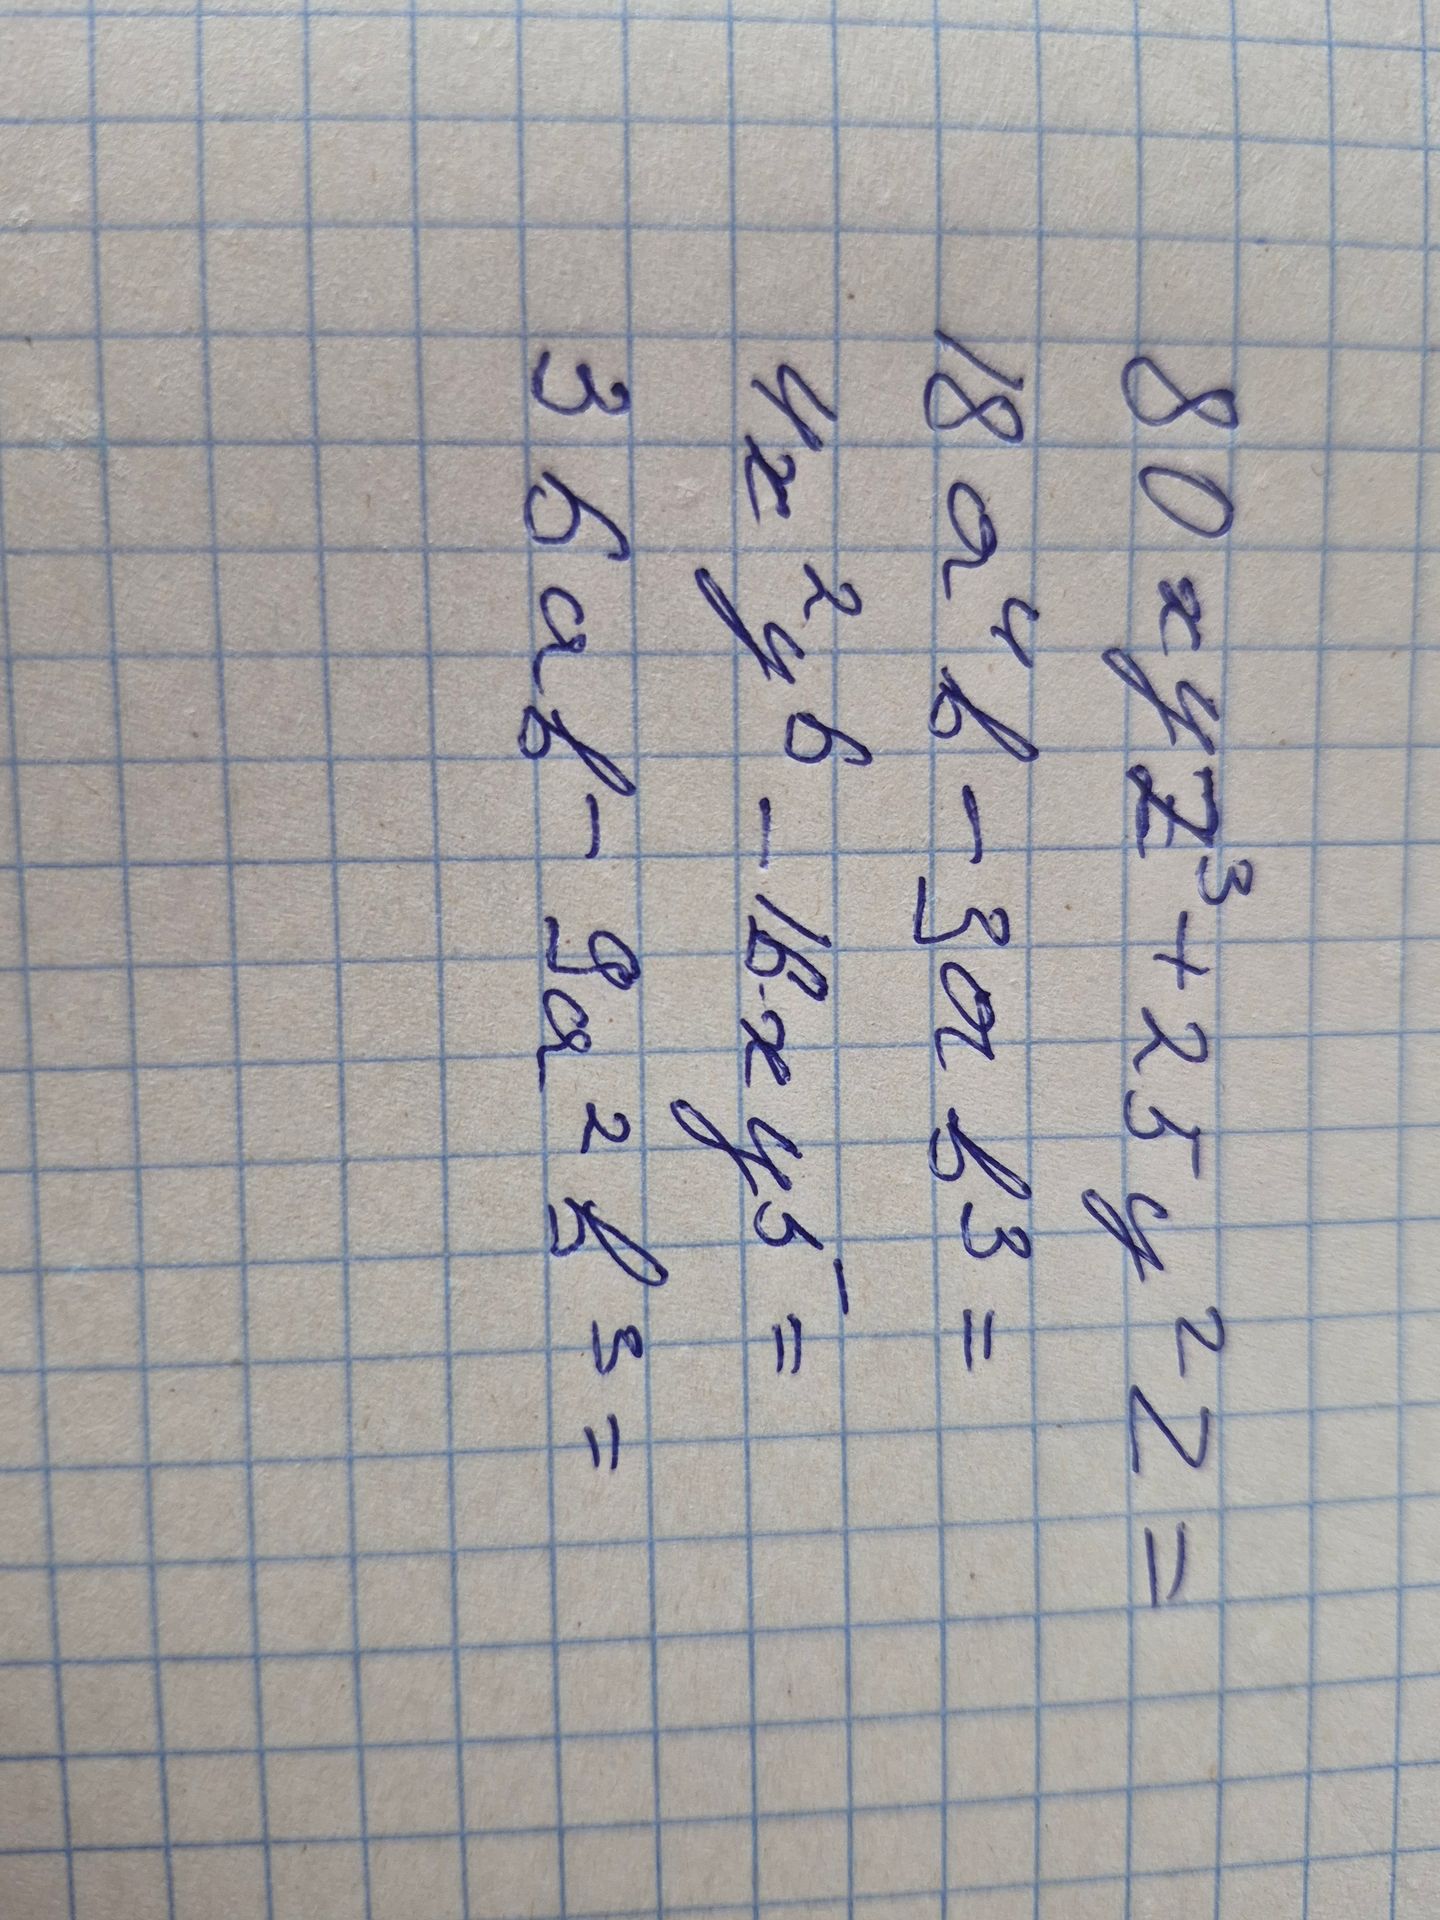 80xyz³+25y²z=
18a⁴b-3ab³=
4x²y⁶-16xy⁵=
36ab-9a²b³=